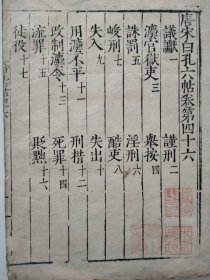 唐宋白孔六帖卷第四十六
議讞一 謹刑二
灋官獄吏三 舉按四
誅罰五 淫刑六
峻刑七 酷吏八
失入九 失出十
用灋不平十一 刑措十二
改制灋令十三 死罪十四
流罪十五 貶黜十六
徒役十七